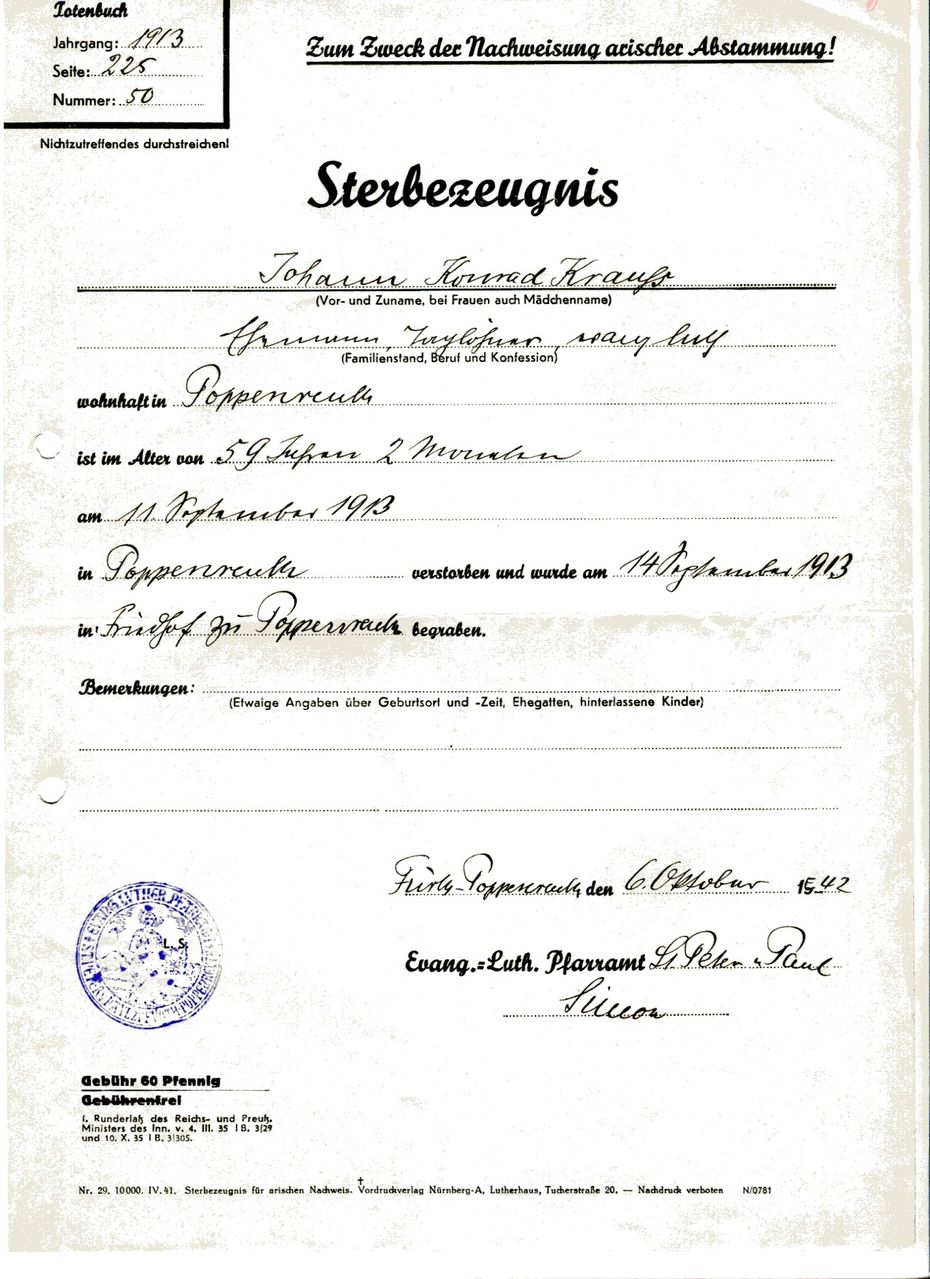 Totenbuch
Jahrgang: 1913
Seite: 225
Nummer: 50
Nichtzutreffendes durchstreichen!
Zum Zweck der Nachweisung arischer Abstammung!
Sterbezeugnis
Johann Konrad Krauß
(Vor- und Zuname, bei Frauen auch Mädchenname)
Ehemann, Taglöhner, evang luth
(Familienstand, Beruf und Konfession)
wohnhaft in Poppenreuth
ist im Alter von 59 Jahren 2 Monaten
am 11. September 1913
in Poppenreuth verstorben und wurde am 14 September 1913
in Friedhof zu Poppenreuth begraben.
Bemerkungen:
(Etwaige Angaben über Geburtsort und -Zeit, Ehegatten, hinterlassene Kinder)
Fürth-Poppenreuth den 6. Oktober 1942
L. S.
Evang.=Luth. Pfarramt St Peter u Paul
Simon
Gebühr 60 Pfennig
Gebührenfrei
f. Runderlaß des Reichs- und Preuß.
Ministers des Inn. v. 4. III. 35 I B. 3/29
und 10. X. 35 I B. 3/305.
Nr. 29. 10000. IV. 41. Sterbezeugnis für arischen Nachweis. Vordruckverlag Nürnberg-A, Lutherhaus, Tucherstraße 20. — Nachdruck verboten N/0781